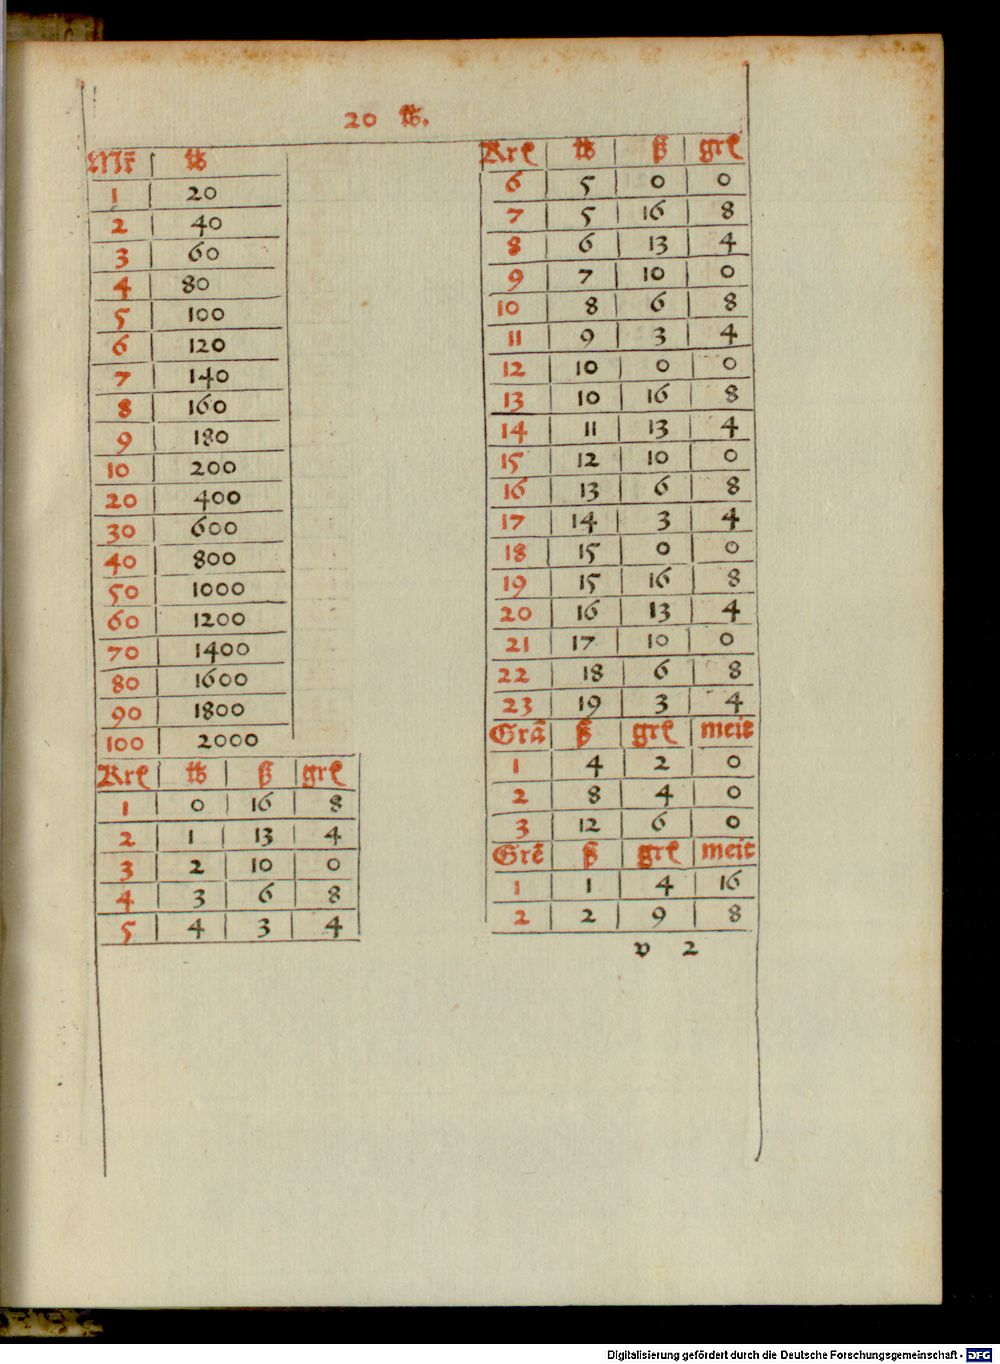 20 ℔.
Mr̄ ℔
1 20
2 40
3 60
4 80
5 100
6 120
7 140
8 160
9 180
10 200
20 400
30 600
40 800
50 1000
60 1200
70 1400
80 1600
90 1800
100 2000
Krꝭ ℔ ß grꝭ
1 0 16 8
2 1 13 4
3 2 10 0
4 3 6 8
5 4 3 4
Krꝭ ℔ ß grꝭ
6 5 0 0
7 5 16 8
8 6 13 4
9 7 10 0
10 8 6 8
11 9 3 4
12 10 0 0
13 10 16 8
14 11 13 4
15 12 10 0
16 13 6 8
17 14 3 4
18 15 0 0
19 15 16 8
20 16 13 4
21 17 10 0
22 18 6 8
23 19 3 4
Grā ß grꝭ meit
1 4 2 0
2 8 4 0
3 12 6 0
Grē ß grꝭ meit
1 1 4 16
2 2 9 8
v 2
Digitalisierung gefördert durch die Deutsche Forschungsgemeinschaft - DFG